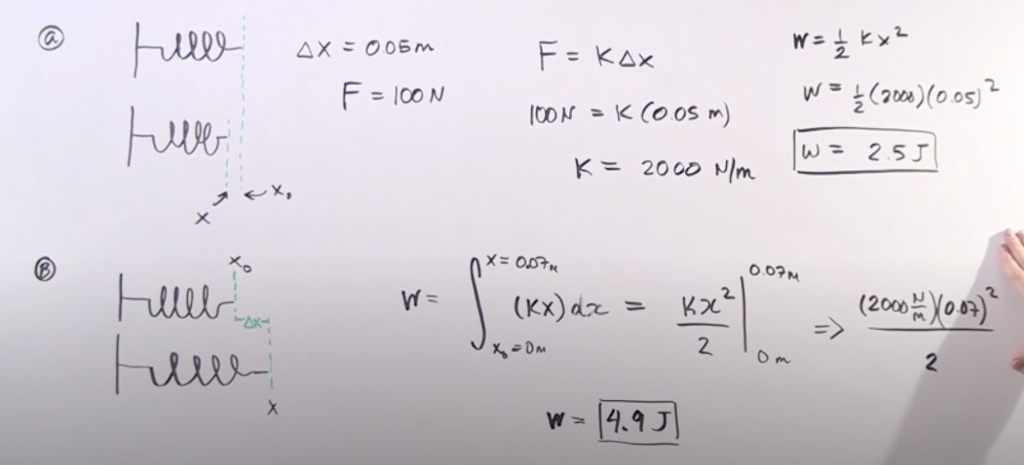 ⓐ
Δx = 005m
F = 100N
x
← x₀
F = KΔx
100N = K (0.05 m)
K = 2000 N/m
W = 1/2 Kx²
W = 1/2 (2000)(0.05)²
W = 2.5 J
Ⓑ
x₀
Δx
x
W = ∫ x = 0.07m x₀ = 0m (Kx) dx = Kx²/2 | 0.07m 0m => (2000 N/m)(0.07)²/2
W = 4.9 J